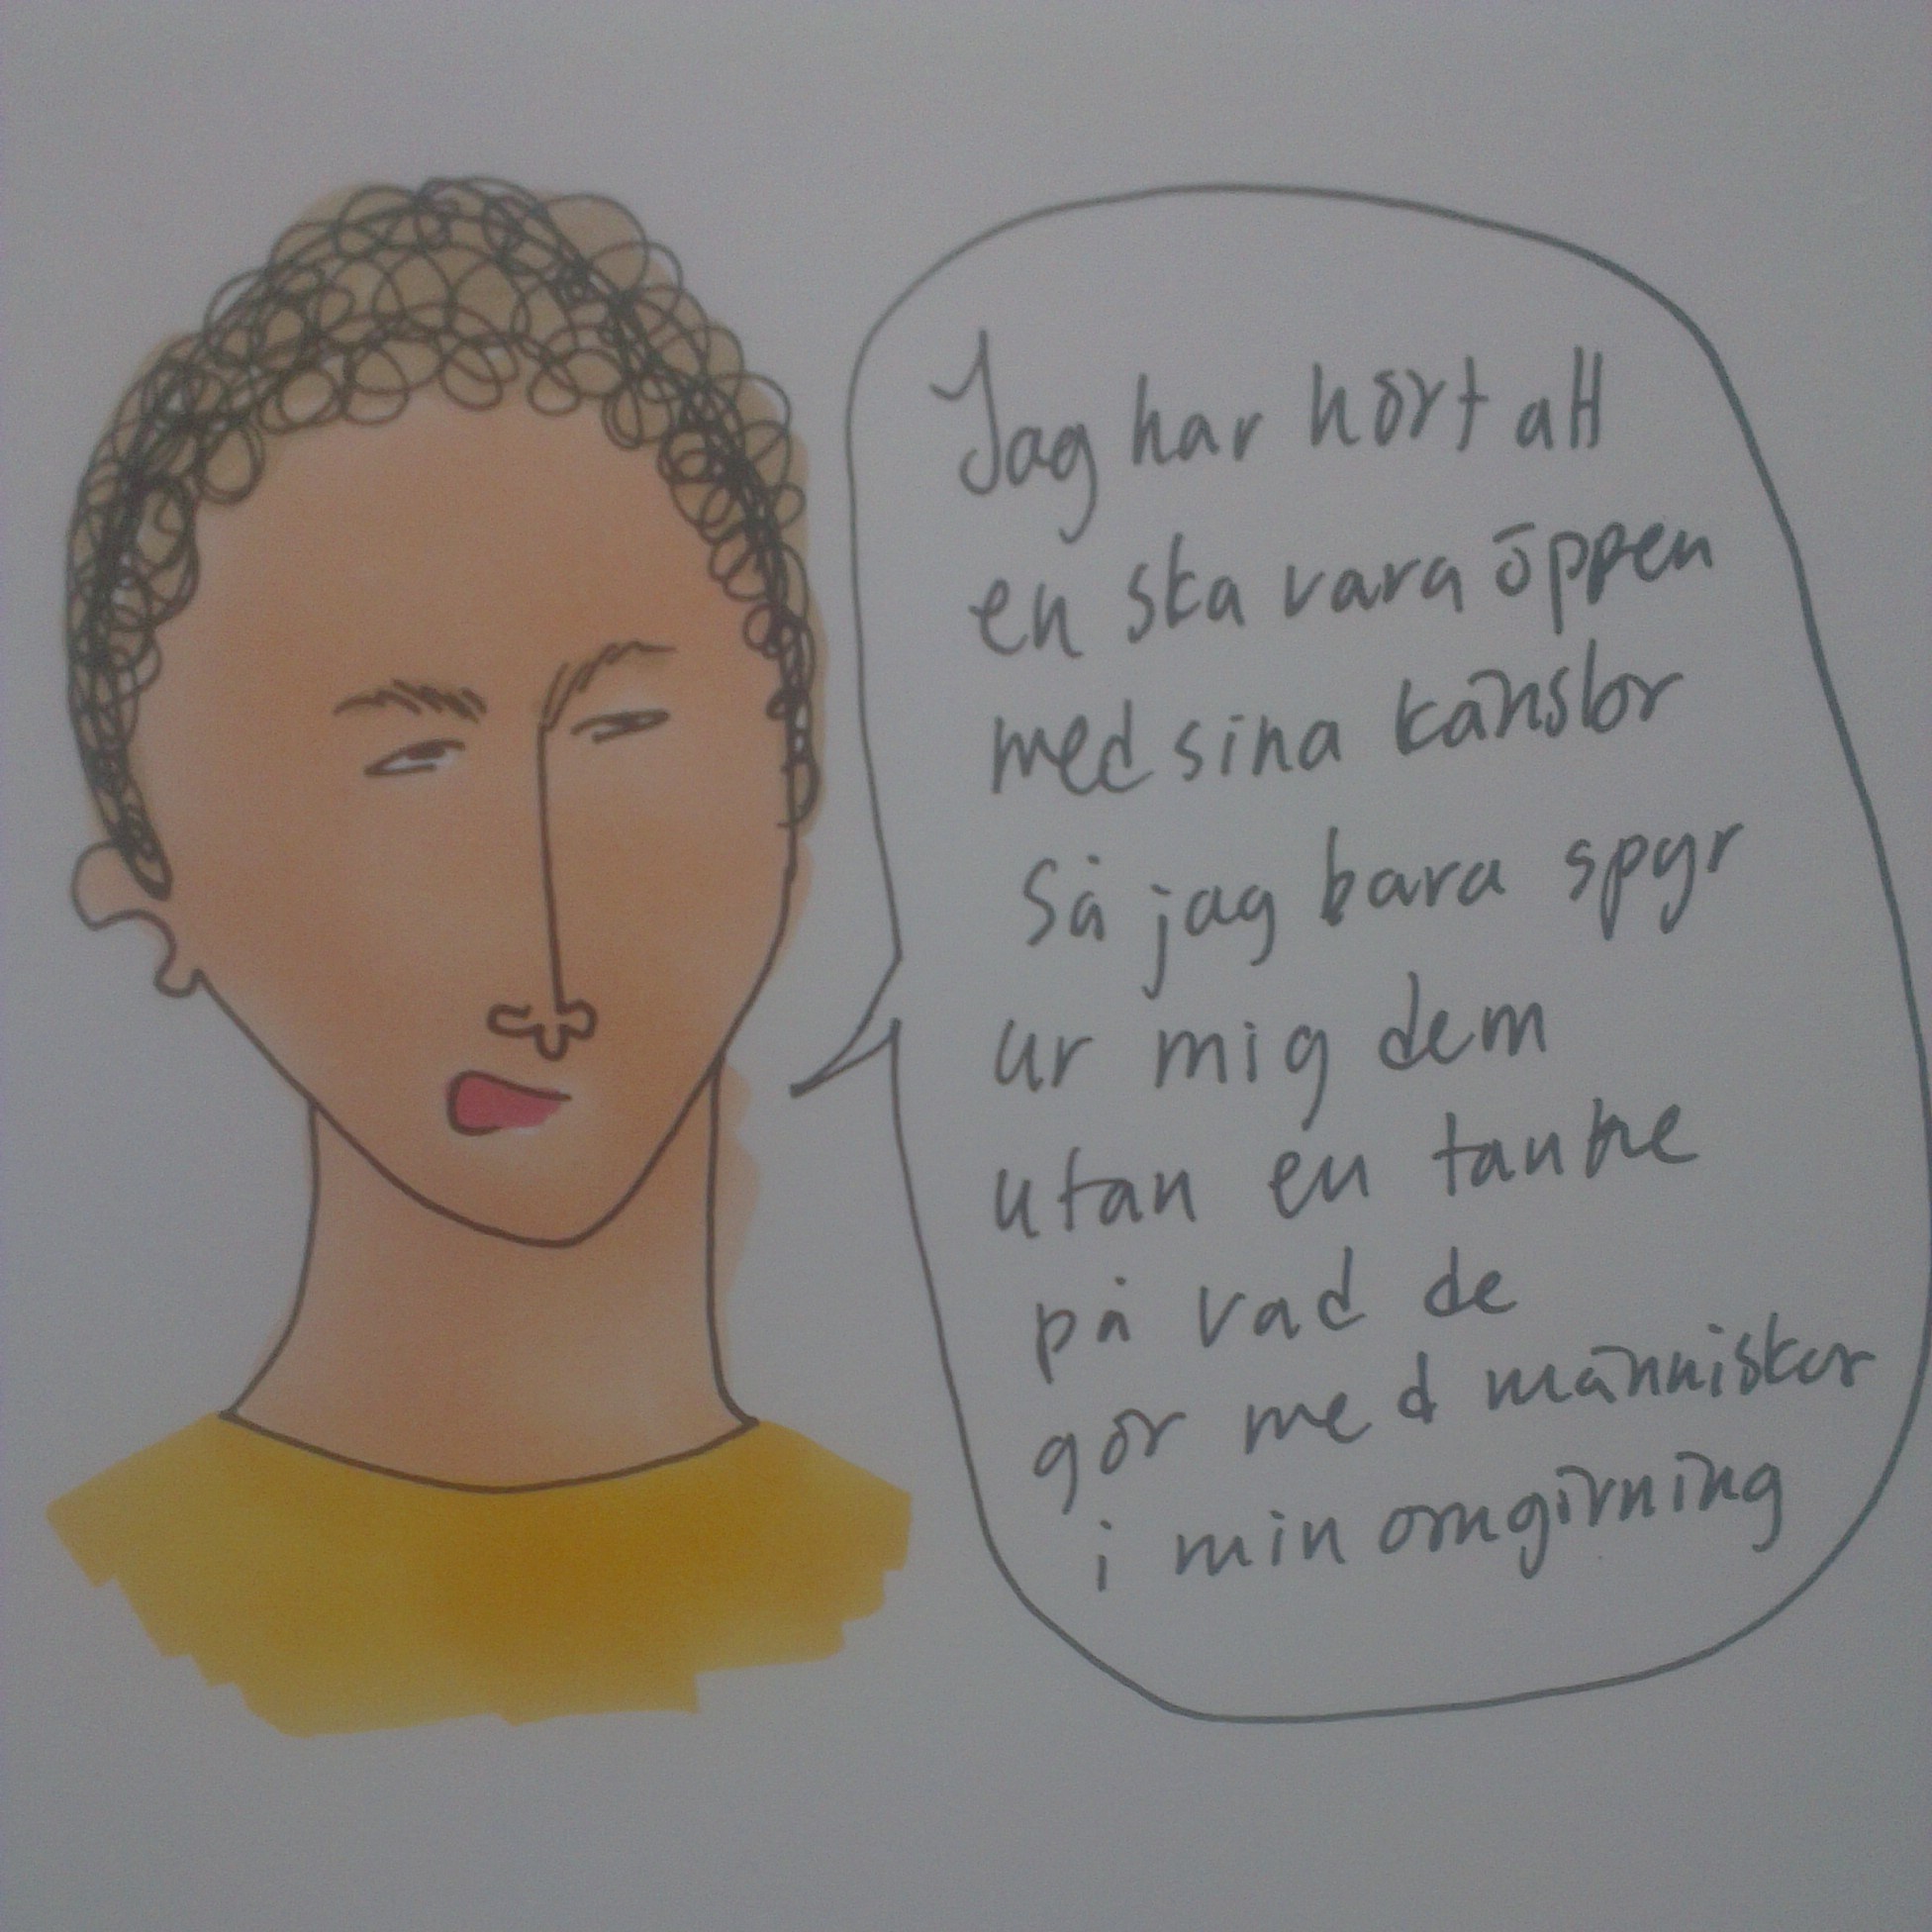 Jag har hört att
en ska vara öppen
med sina känslor
Så jag bara spyr
ur mig dem
utan en tanke
på vad de
gör med människor
i min omgivning